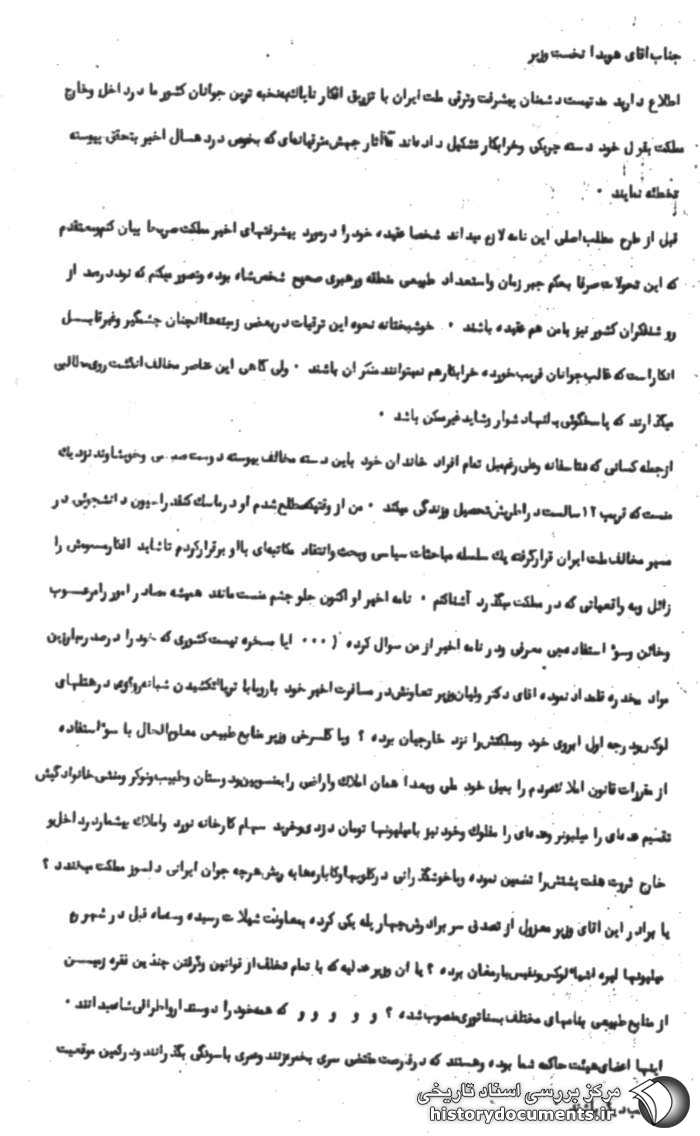 جناب آقای هویدا نخست وزیر
اطلاع دارید مدتیست دشمنان پیشرفت وترقی ملت ایران با تزریق افکار ناپاک بنخبه ترین جوانان کشور ما در داخل وخارج
مملکت بقول خود دسته چریکی وخرابکار تشکیل داده‌اند تا آثار جهش مترقیانه‌ای که بخوص در دهسال اخیر بتحقق پیوسته
تخطئه نمایند ۰
قبل از طرح مطلب اصلی این نامه لازم میداند شخصا عقیده خود را درمورد پیشرفتهای اخیر مملکت صریحا بیان کنم معتقدم
که این تحولات صرفا بحکم جبر زمان واستعداد طبیعی منطقه ورهبری صحیح شخص شاه بوده وتصور میکنم که نود درصد از
روشنفکران کشور نیز بامن هم عقیده باشند ۰ خوشبختانه نحوه این ترقیات در بعضی زمینه‌ها آنچنان چشمگیر وغیرقابل
انکار است که غالب جوانان فریب خورده خرابکار هم نمیتوانند منکر آن باشند ۰ ولی گاهی این عناصر مخالف انگشت روی مطالبی
میگذارند که پاسخگوئی به آنها دشوار وشاید غیرممکن باشد ۰
ازجمله کسانی که متاسفانه وعلی رغم میل تمام افراد خاندان خود باین دسته مخالف پیوسته دوست صمیمی وخویشاوند نزدیک
منست که قریب ۱۲ سالست در اطریش تحصیل وزندگی میکند ۰ من از وقتیکه مطلع شدم او در ماسک کنفدراسیون دانشجوئی در
مسیر مخالف ملت ایران قرار گرفته یک سلسله مباحثات سیاسی وبحث وانتقاد مکاتبه‌ای با او برقرار کردم تا شاید افکار مسمومش را
زائل وبه واقعیاتی که در مملکت میگذرد آشنا کنم ۰ نامه اخیر او اکنون جلو چشم منست مانند همیشه مصادر امور را مرعوب
وخائن وسوء استفاده‌چی معرفی ودر نامه اخیر از من سوال کرده ( ۰۰۰ آیا مسخره نیست کشوری که خود را درصدر مبارزین
مواد مخدره قلمداد نموده آقای دکتر ولیان وزیر تعاونش در مسافرت اخیر خود باروپا با تریاک کشیدن شبانه‌روزی در هتلهای
لوکس درجه اول آبروی خود ومملکتش را نزد خارجیان برده ؟ ویا گلسرخی وزیر منابع طبیعی معلوم الحال با سوء استفاده
از مقررات قانون املاک مردم را بمیل خود ملی وبعدا همان املاک واراضی را بمنسوبین ودوستان وطبیب ونوکر ومنشی خانوادگیش
تقسیم عده‌ای را میلیونر وعده‌ای را مفلوک وخود نیز با میلیونها تومان دزدی وخرید سهام کارخانه نورد واملاک بیشمار در داخل و
خارج ثروت هفت پشتش را تضمین نموده وبا خوشگذرانی در کلوبها وکاباره‌ها به ریش هرچه جوان ایرانی دلسوز مملکت میخندد ؟
یا برادر این آقای وزیر معزول از تصدی سر برادرش چهار پله یکی کرده بمعاونت شیلات رسیده وسه ماه قبل در
میلیونها لیره اشیاء لوکس ونفیس بارمغان برده ؟ یا آن وزیر عدلیه که با تمام تخلف از قوانین وگرفتن چندین فقره زمین
از منابع طبیعی بنامهای مختلف بسناتوری منصوب شده ؟ و و و و و که همه خود را دوستدار واطرافی شما میدانند ۰
اینها اعضای هیئت حاکمه شما بوده وهستند که در فرصت مقتضی سری بخرمن زنند وعمری باسودگی بگذرانند ودر کمین موقعیت
مرکز بررسی اسناد تاریخی
historydocuments.ir